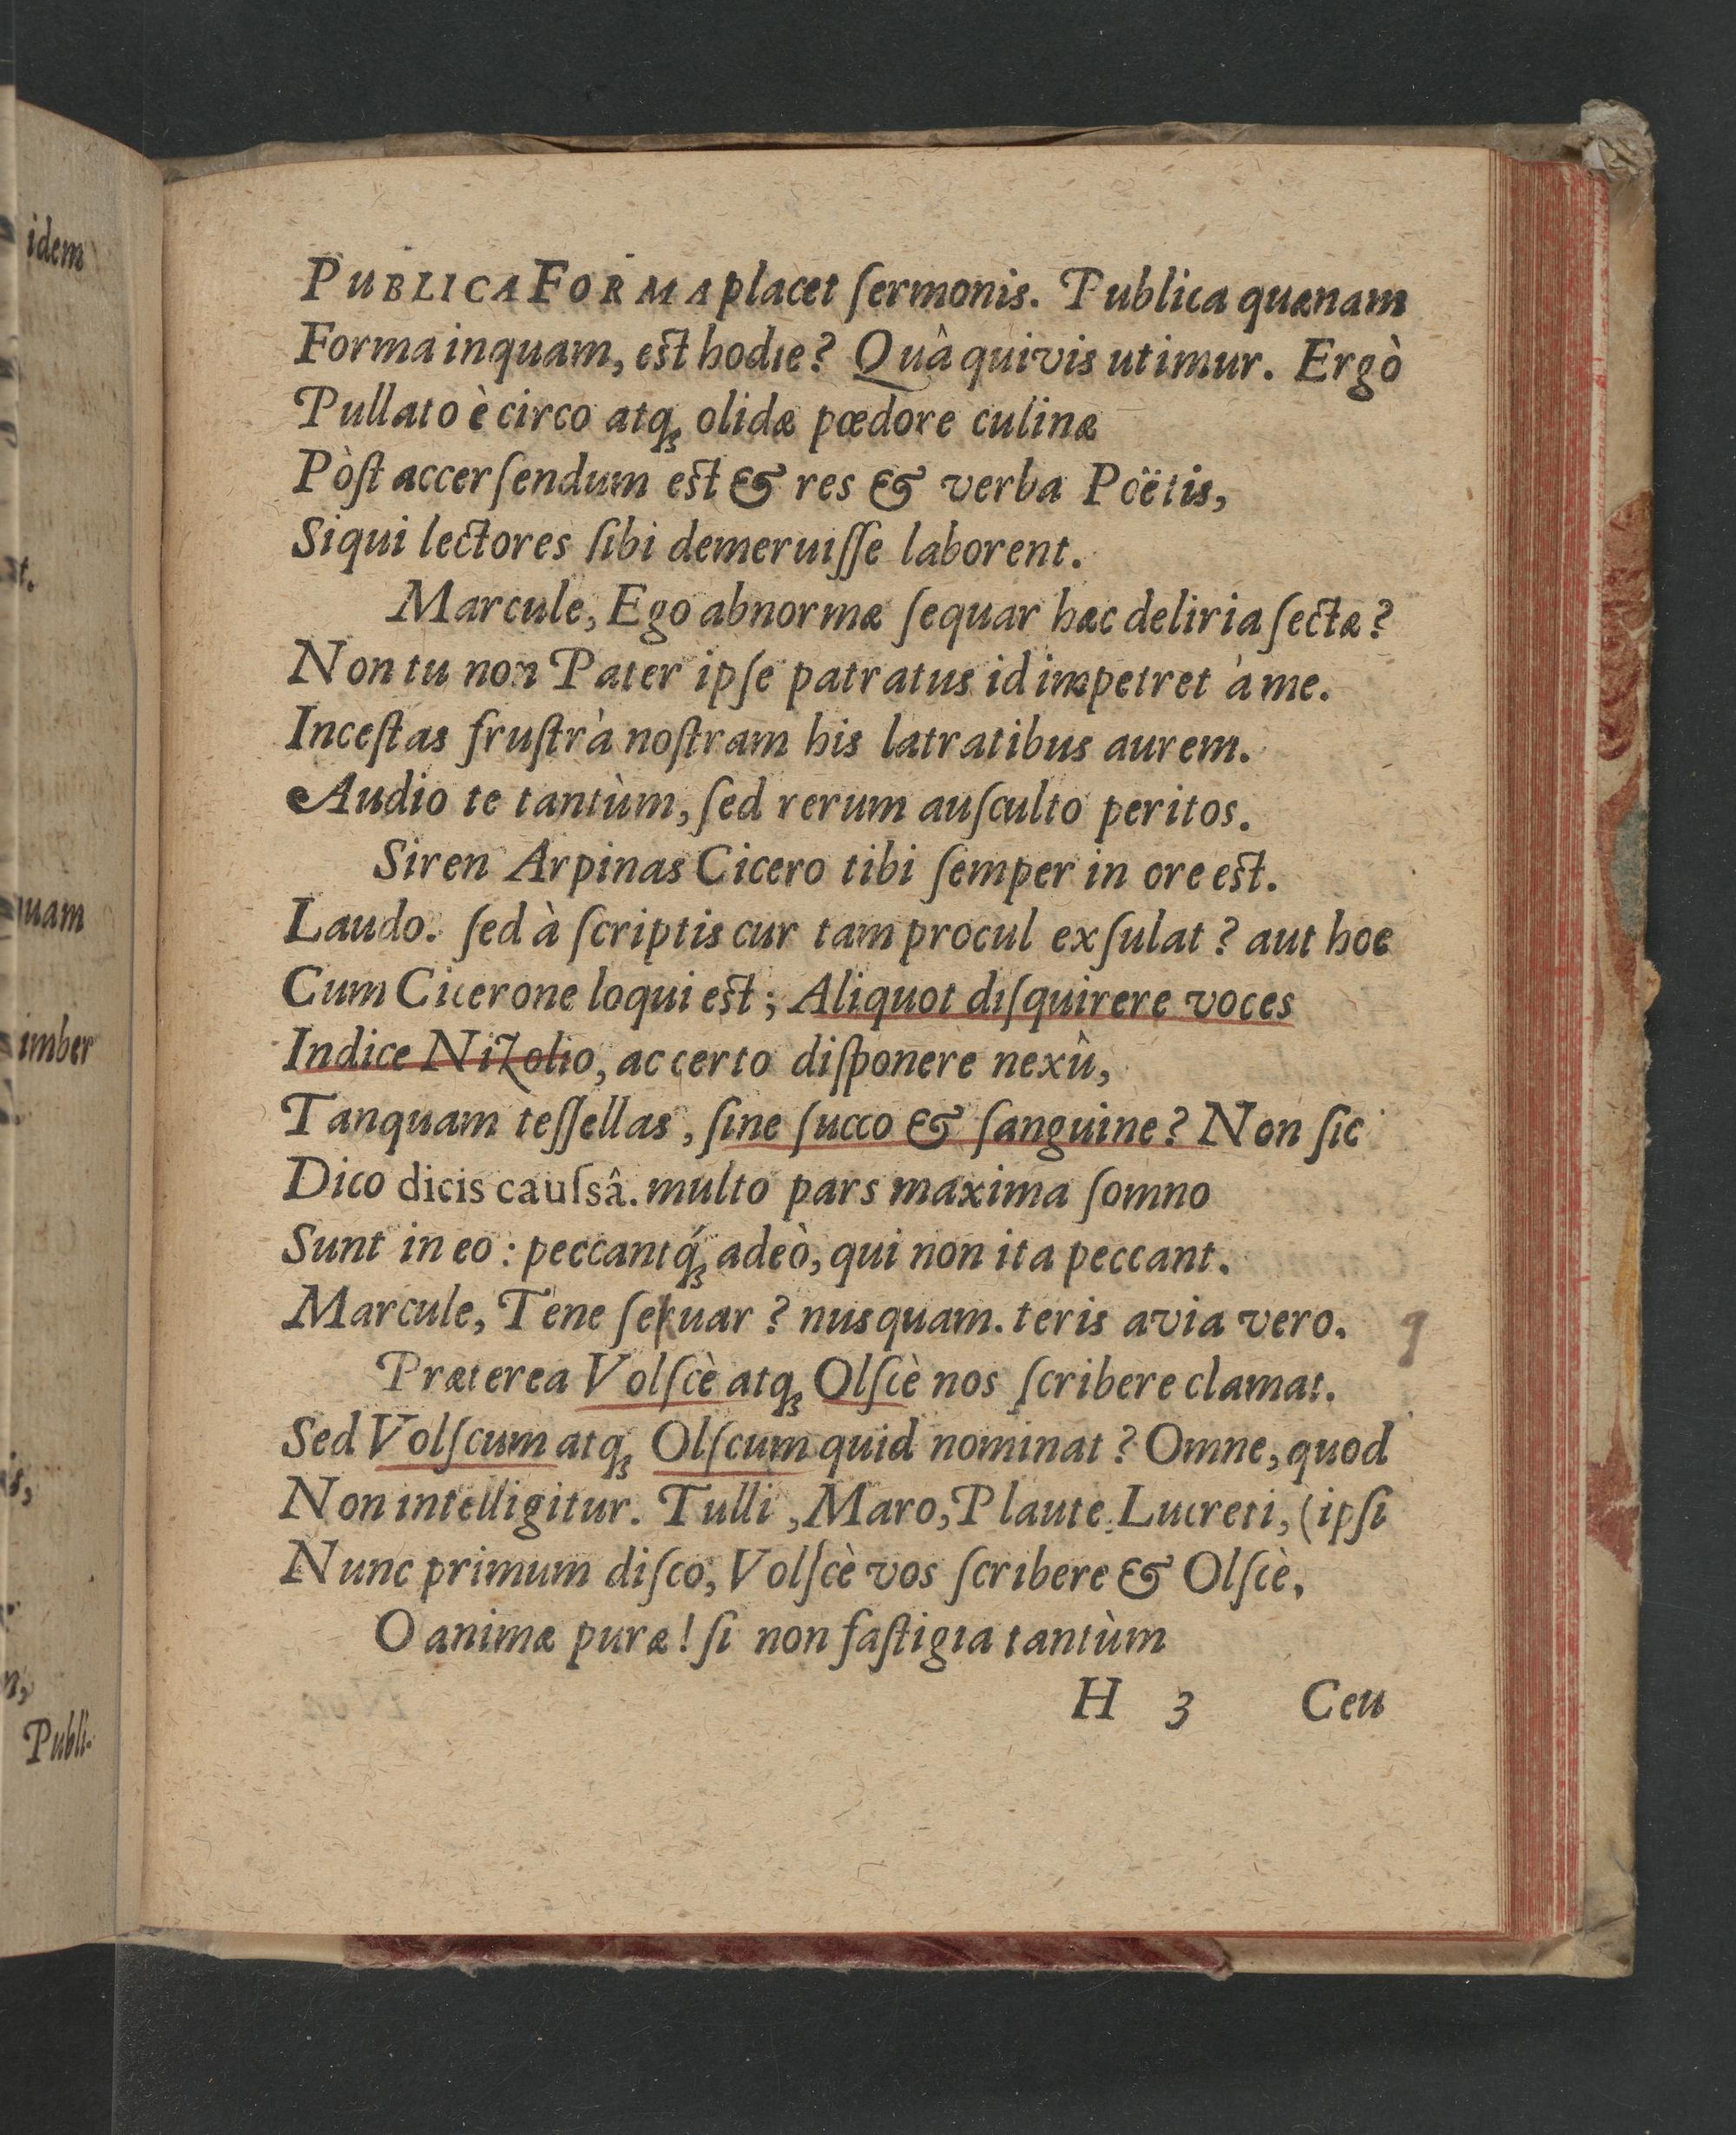 PUBLICA FORMA placet ſermonis. Publica quænam
Forma inquam, est hodie? Quâ quivis utimur. Ergò
Pullato è circo atq; olidæ pœdore culinæ
Pòſt accerſendum est & res & verba Poëtis,
Siqui lectores ſibi demeruiſſe laborent.
Marcule, Ego abnormæ ſequar hæc deliria ſectæ?
Non tu non Pater ipſe patratus id impetret à me.
Inceſtas fruſtrà noſtram his latratibus aurem.
Audio te tantùm, ſed rerum auſculto peritos.
Siren Arpinas Cicero tibi ſemper in ore est.
Laudo. ſed à ſcriptis cur tam procul exſulat? aut hoc
Cum Cicerone loqui est; Aliquot diſquirere voces
Indice Nizolio, ac certo diſponere nexû,
Tanquam teſſellas, ſine ſucco & ſanguine? Non ſic
Dico dicis cauſsâ. multo pars maxima ſomno
Sunt in eo: peccantq́; adeò, qui non ita peccant.
Marcule, Tene ſekuar? nusquam. teris avia vero. q
Præterea Volſcè atq; Olſcè nos ſcribere clamat.
Sed Volſcum atq; Olſcum quid nominat? Omne, quod
Non intelligitur. Tulli, Maro, Plaute, Lucreti, (ipſi
Nunc primum diſco, Volſcè vos ſcribere & Olſcè,
O animæ puræ! ſi non faſtigia tantùm
H 3 Ceu
idem
uam
imber
Publi-